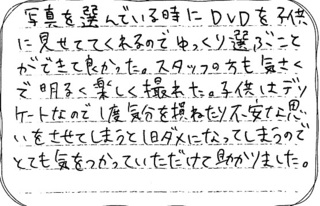 写真を選んでいる時にDVDを子供
に見せててくれるのでゆっくり選ぶこと
ができて良かった。スタッフの方も気さく
で明るく楽しく撮れた。子供はデリ
ケートなので1度気分を損ねたり不安な思
いをさせてしまうと1日ダメになってしまうので
とても気をつかっていただけて助かりました。